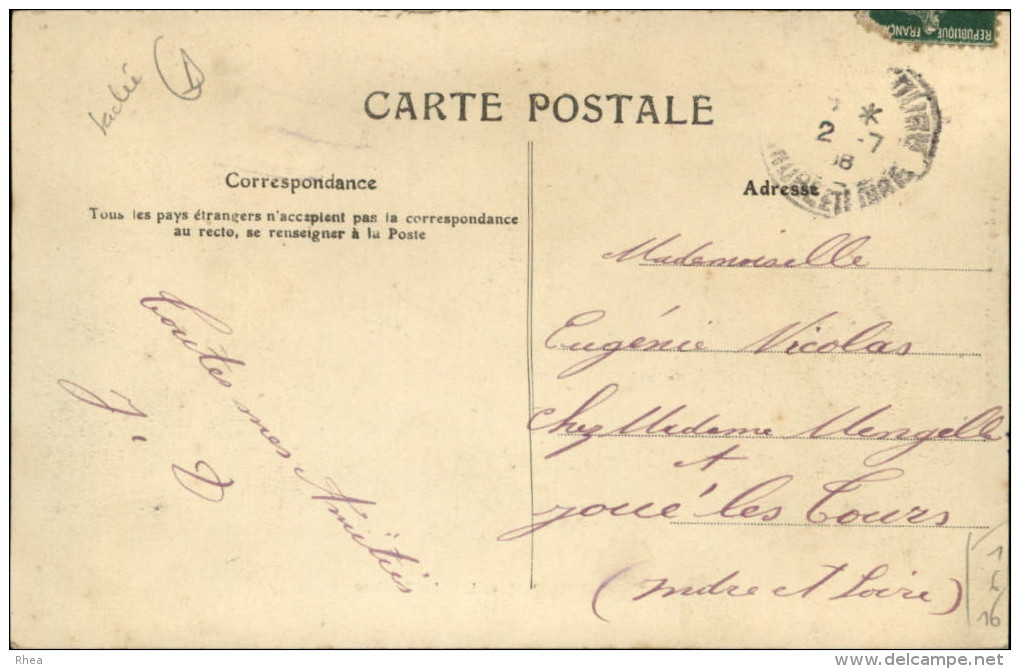 taché
1
REPUBLIQUE FRANÇ
CARTE POSTALE
2 -7
08
Correspondance
Adresse
Tous les pays étrangers n'acceptent pas la correspondance
au recto, se renseigner à la Poste
Toutes mes Amitiés
J. D
Mademoiselle
Eugénie Nicolas
Chez Madame Mengelle
A
Joué les Tours
(Indre et Loire)
1
16
Rhea
www.delcampe.net